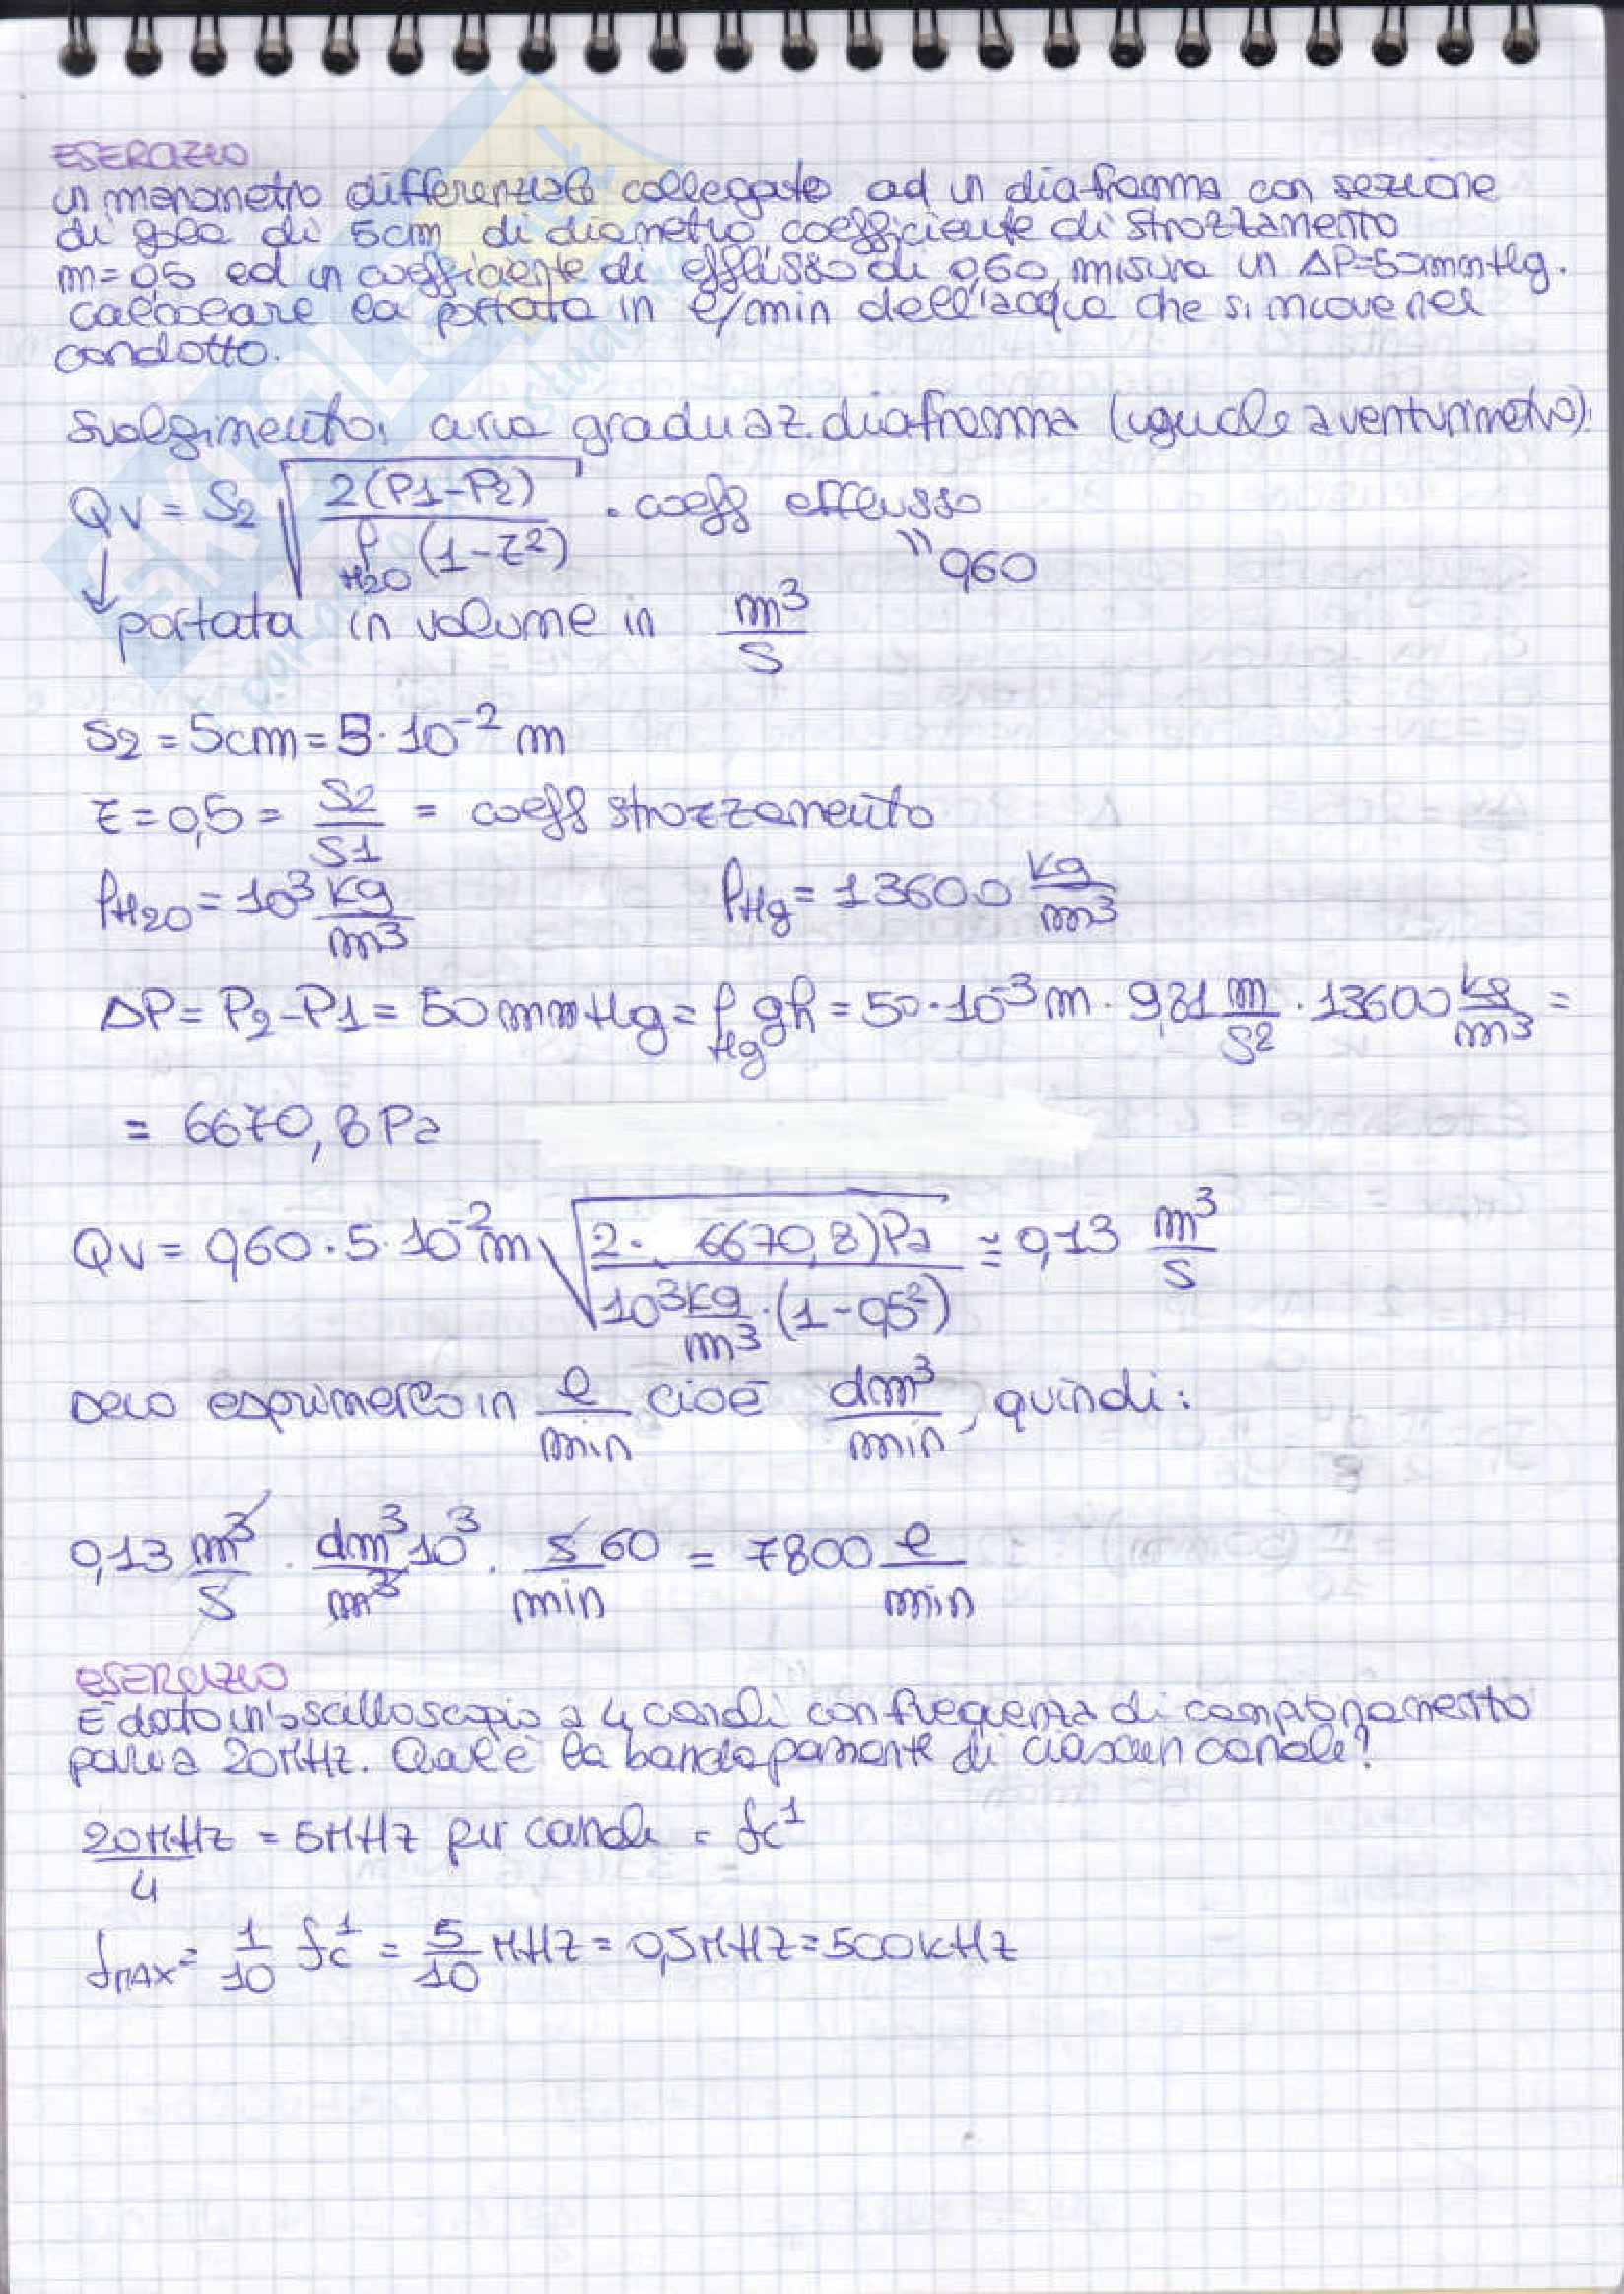 ESERCIZIO
un manometro differenziale collegato ad un diaframma con sezione
di gola di 5cm di diametro coefficiente di strozzamento
m=0,5 ed un coefficiente di efflusso di 0,60, misura un ΔP=50mmHg.
calcolare la portata in l/min dell'acqua che si muove nel
condotto.
Svolgimento: curva graduaz. diaframma (uguale a venturimetro):
Qv = S2 √(2(P1-P2) / ρH2O (1-z²)) · coeff efflusso
" 0,60
↓ portata in volume in m³/s
S2 = 5cm = 5·10⁻² m
z = 0,5 = S2/S1 = coeff strozzamento
ρH2O = 10³ kg/m³ ρHg = 13600 kg/m³
ΔP = P2-P1 = 50mmHg = ρHg gh = 50·10⁻³ m · 9,81 m/s² · 13600 kg/m³ =
= 6670,8 Pa
Qv = 0,60 · 5 · 10⁻² m √(2 · 6670,8)Pa / 10³ kg/m³ · (1-0,5²) ≅ 0,13 m³/s
Devo esprimerlo in l/min cioè dm³/min, quindi:
0,13 m³/s · dm³10³/m³ · s60/min = 7800 l/min
ESERCIZIO
È dato un oscilloscopio a 4 canali con frequenza di campionamento
pari a 20MHz. Qual è la banda passante di ciascun canale?
20MHz/4 = 5MHz per canale = fc¹
fMAX = 1/10 fc¹ = 5/10 MHz = 0,5MHz = 500kHz